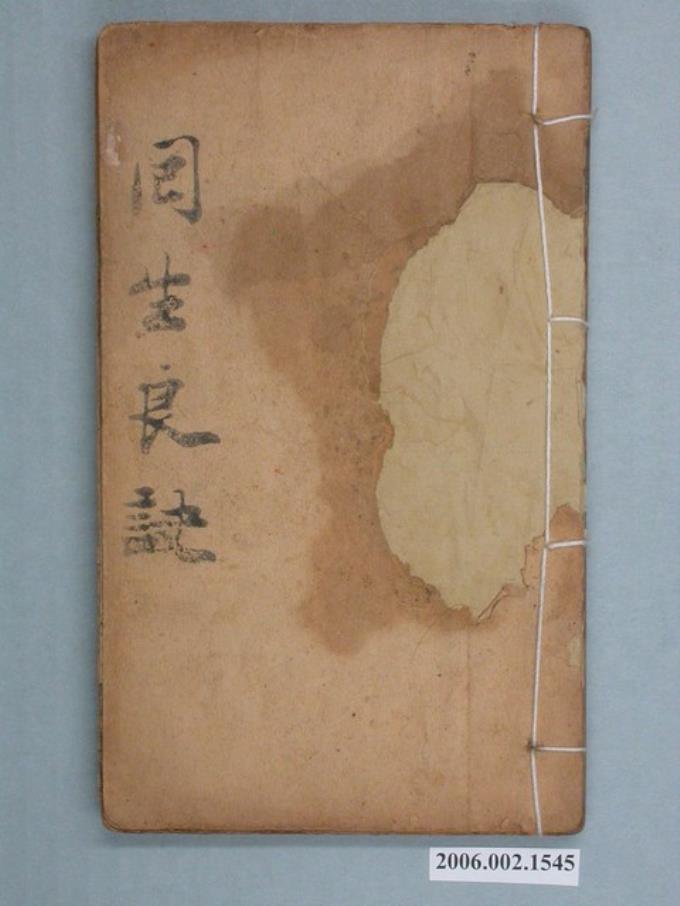 囘生良訣
2006.002.1545